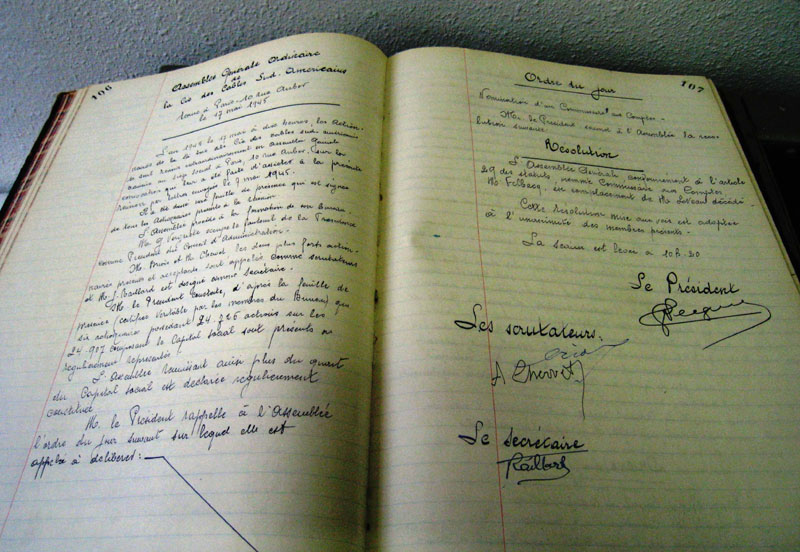 106
Assemblée Générale Ordinaire
de
la Cie des Cables Sud-Américains
tenue à Paris 10 rue Auber
le 17 mai 1945
L'an 1945 le 17 mai à dix heures, les Action-
naires de la Cie des cables sud américains
se sont réunis en assemblée Générale
au siège social à Paris, 10 rue Auber, sur la
convocation qui leur a été faite d'assister à la présente
réunion par lettre envoyée le 7 mai 1945.
Il a été dressé une feuille de présence qui est signée
de tous les Actionnaires présents à la séance.
L'Assemblée procède à la formation de son Bureau.
Mr occupe le fauteuil de la Présidence
comme Président du Conseil d'Administration.
Mm et Chauvet les deux plus forts action-
naires présents et acceptants sont appelés comme scrutateurs
et Mr J. Raillard est désigné comme Secrétaire.
Mr le Président constate, d'après la feuille de
présence (certifiée véritable par les membres du Bureau) que
six actionnaires possédant 24.726 actions sur les
24.987 composant le Capital social sont présents ou
régulièrement représentés.
L'Assemblée réunissant ainsi plus du quart
du Capital social est déclarée régulièrement
constituée.
M. le Président rappelle à l'Assemblée
l'ordre du jour suivant sur lequel elle est
appelée à délibérer:
107
Ordre du jour
Nomination d'un Commissaire aux Comptes.-
Mr le Président soumet à l'Assemblée la réso-
lution suivante
Résolution
L'Assemblée Générale conformément à l'article
29 des statuts nomme Commissaire aux Comptes
Mr Felbacq, en remplacement de Mr décédé.-
Cette résolution mise aux voix est adoptée
à l'unanimité des membres présents.-
La séance est levée à 10h.20
Le Président
Les scrutateurs:
Le secrétaire
Raillard